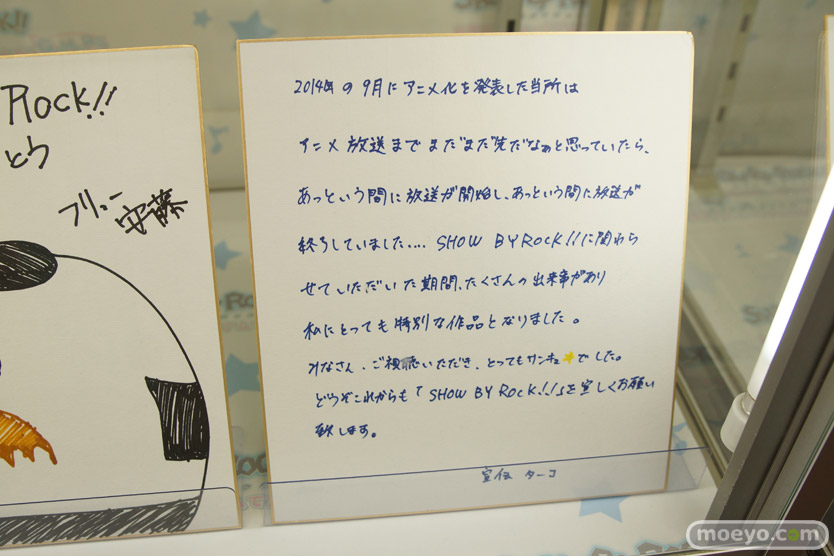 Rock!!
とう
フリュー
安藤
2014年の9月にアニメ化を発表した当所は
アニメ放送まで まだまだ先だなぁと思っていたら、
あっという間に放送が開始し、あっという間に放送が
終了していました.... SHOW BY ROCK!!に関わら
せていただいた期間、たくさんの出来事があり
私にとっても特別な作品となりました。
みなさん、ご視聴いただき、とってもサンキュ★でした。
どうぞこれからも「SHOW BY Rock!!」を宜しくお願い
致します。
宣伝 ターコ
moeyo.com